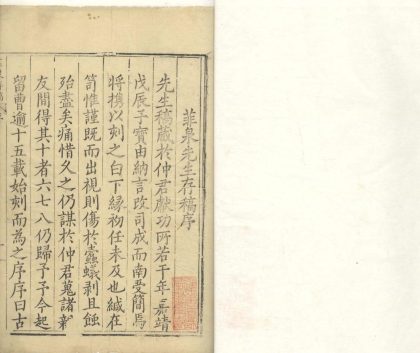 菲泉先生存稿序
先生稿藏於仲君獻功所若干年嘉靖
戊辰予實由納言改司成而南受簡焉
將携以刻之白下緣初任未及也緘在
笥惟謹既而出視則傷於蠹蟻剥且蝕
殆盡矣痛惜久之仍謀於仲君蒐諸新
友間得其十者六七八仍歸予予今起
留曹逾十五載始刻而為之序序曰古